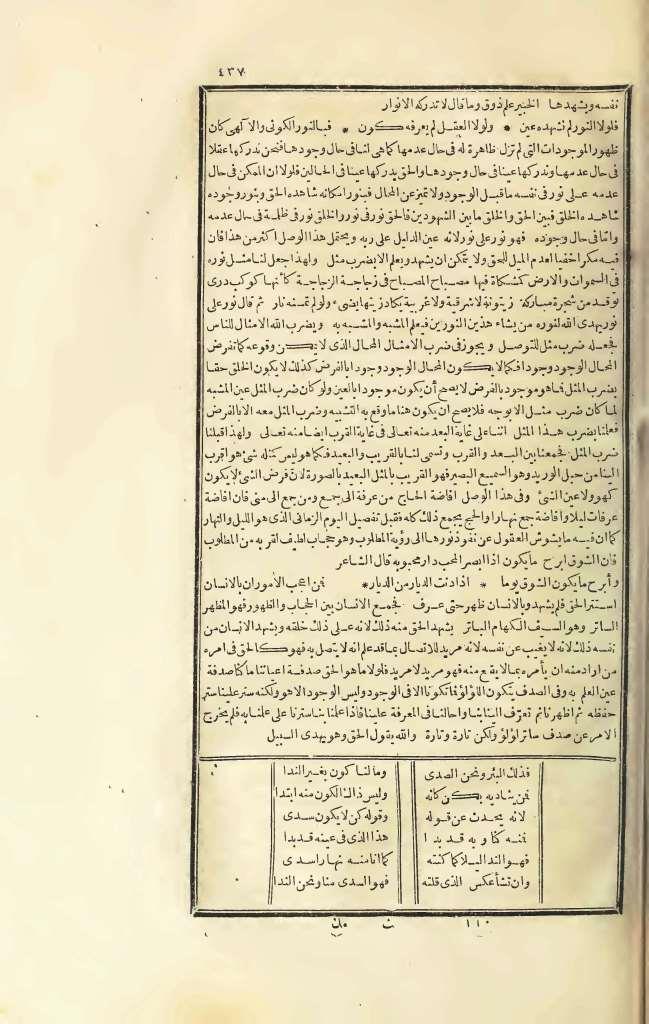 ٤٣٧
نفسه ويشهدها الخبير علم ذوق وما قال لا تدركه الانوار
فلولا النور لم تشهده عين * ولولا العقل لم يعرفه كون * فبالنور الكونى والالهى كان
ظهور الموجودات التى لم تزل ظاهرة له فى حال عدمها كماهى لنا فى حال وجودها فنحن ندركها عقلا
فى حال عدمها وندركها عينا فى حال وجودها والحق يدركها عينا فى الحالين فلولا ان الممكن فى حال
عدمه على نور فى نفسه ما قبل الوجود ولا تميز عن المحال فبنور امكانه شاهده الحق وبنور وجوده
شاهده الخلق فبين الحق والخلق ما بين الشهودين فالحق نور فى نور والخلق نور فى ظلمة فى حال عدمه
واما فى حال وجوده فهو نور على نور لانه عين الدليل على ربه ويحتمل هذا الوصل اكثر من هذا فان
فيه مكرا خفيا لعدم المثل للحق ولا يتمكن ان يشهد ويعلم الا بضرب مثل ولهذا جعل لنا مثل نوره
فى السموات والارض كمشكاة فيها مصباح المصباح فى زجاجة الزجاجة كأنها كوكب درى
توقد من شجرة مباركة زيتونة لا شرقية ولا غربية يكاد زيتها يضىء ولو لم تمسسه نار ثم قال نور على
نور يهدى الله لنوره من يشاء هذين النورين فيعلم المشبه والمشبه به ويضرب الله الامثال للناس
فجعله ضرب مثل للتوصل ويجوز فى ضرب الامثال المحال الذى لا يمكن وقوعه كما تفرض
المحال الوجود وجودا فكما لا يكون المحال الوجود وجودا بالفرض كذلك لا يكون الخلق حقا
بضرب المثل فما هو موجود بالفرض لا يصح أن يكون موجودا بالعين ولو كان ضرب المثل عين المشبه
لما كان ضرب مثل الا بوجه فلا يصح ان يكون هنا ما وقع به التشبيه وضرب المثل معه الا بالفرض
فعلمنا بضرب هذا المثل اننا على غاية البعد منه تعالى فى غاية القرب ايضا منه تعالى ولهذا قبلنا
ضرب المثل فجمعنا بين البعد والقرب وتسمى لنا بالقريب والبعيد فكما هو ليس كمثله شئ هو اقرب
الينا من حبل الوريد وهو السميع البصير فهو القريب بالمثل البعيد بالصورة لان فرض الشئ لا يكون
كهو ولا عين الشئ وفى هذا الوصل افاضة الحاج من عرفة الى جمع ومن جمع الى منى فان افاضة
عرفات ليلا وافاضة جمع نهارا والحج يجمع ذلك كله فقبل تفصيل اليوم الزمانى الذى هو الليل والنهار
كما ان فيه ما يشوش العقول عن نفوذ نورها الى رؤية المطلوب وهو حجاب لطيف لقربه من المطلوب
فان الشوق ابرح ما يكون اذا ابصر المحب دار محبوبه قال الشاعر
وأبرح ما يكون الشوق يوما * اذا دنت الديار من الديار * فمن اعجب الامور ان بالانسان
استتر الحق فلم يشهد وبالانسان ظهر حتى عرف فجمع الانسان بين الحجاب والظهور فهو المظهر
الساتر وهو السيف الكهام الباتر يشهد الحق منه ذلك لانه على ذلك خلقه ويشهد الانسان من
نفسه ذلك لانه لا يغيب عن نفسه لانه مريد للاتصال بما قد علم انه لا يتصل به فهو كالحق فى امره
من اراد منه ان يأمره بما لا يقع منه فهو مريد لا مريد فلولا ما هو الحق صدفة اعياننا ما كنا صدفة
عين العلم به وفى الصدف يتكون اللؤلؤ فما تكونا الا فى الوجود وليس الوجود الا هو ولكنه ستر علينا ستر
حفظه ثم اظهرنا ثم تعرف الينا بنا واحالنا فى المعرفة علينا فاذا علمنا بنا سترنا على علمنا به فلم يخرج
الامر عن صدف ساتر لؤلؤ ولكن تارة وتارة والله يقول الحق وهو يهدى السبيل
فذلك البئر ونحن الصدى وما لنا كون بغير الندا
فمن يناديه يكن كانه وليس ذاك الكون منه ابتدا
لانه يحدث عن قوله وقوله كن لا يكون سدى
فنه كنا وبه قد بدا هذا الذى فى عينه قد بدا
فهو الندا ليلا كما كنته كما انا منه نهارا سدى
وان تشأ عكس الذى قلته فهو السدى منا ونحن الندا
١١٠ ث مك